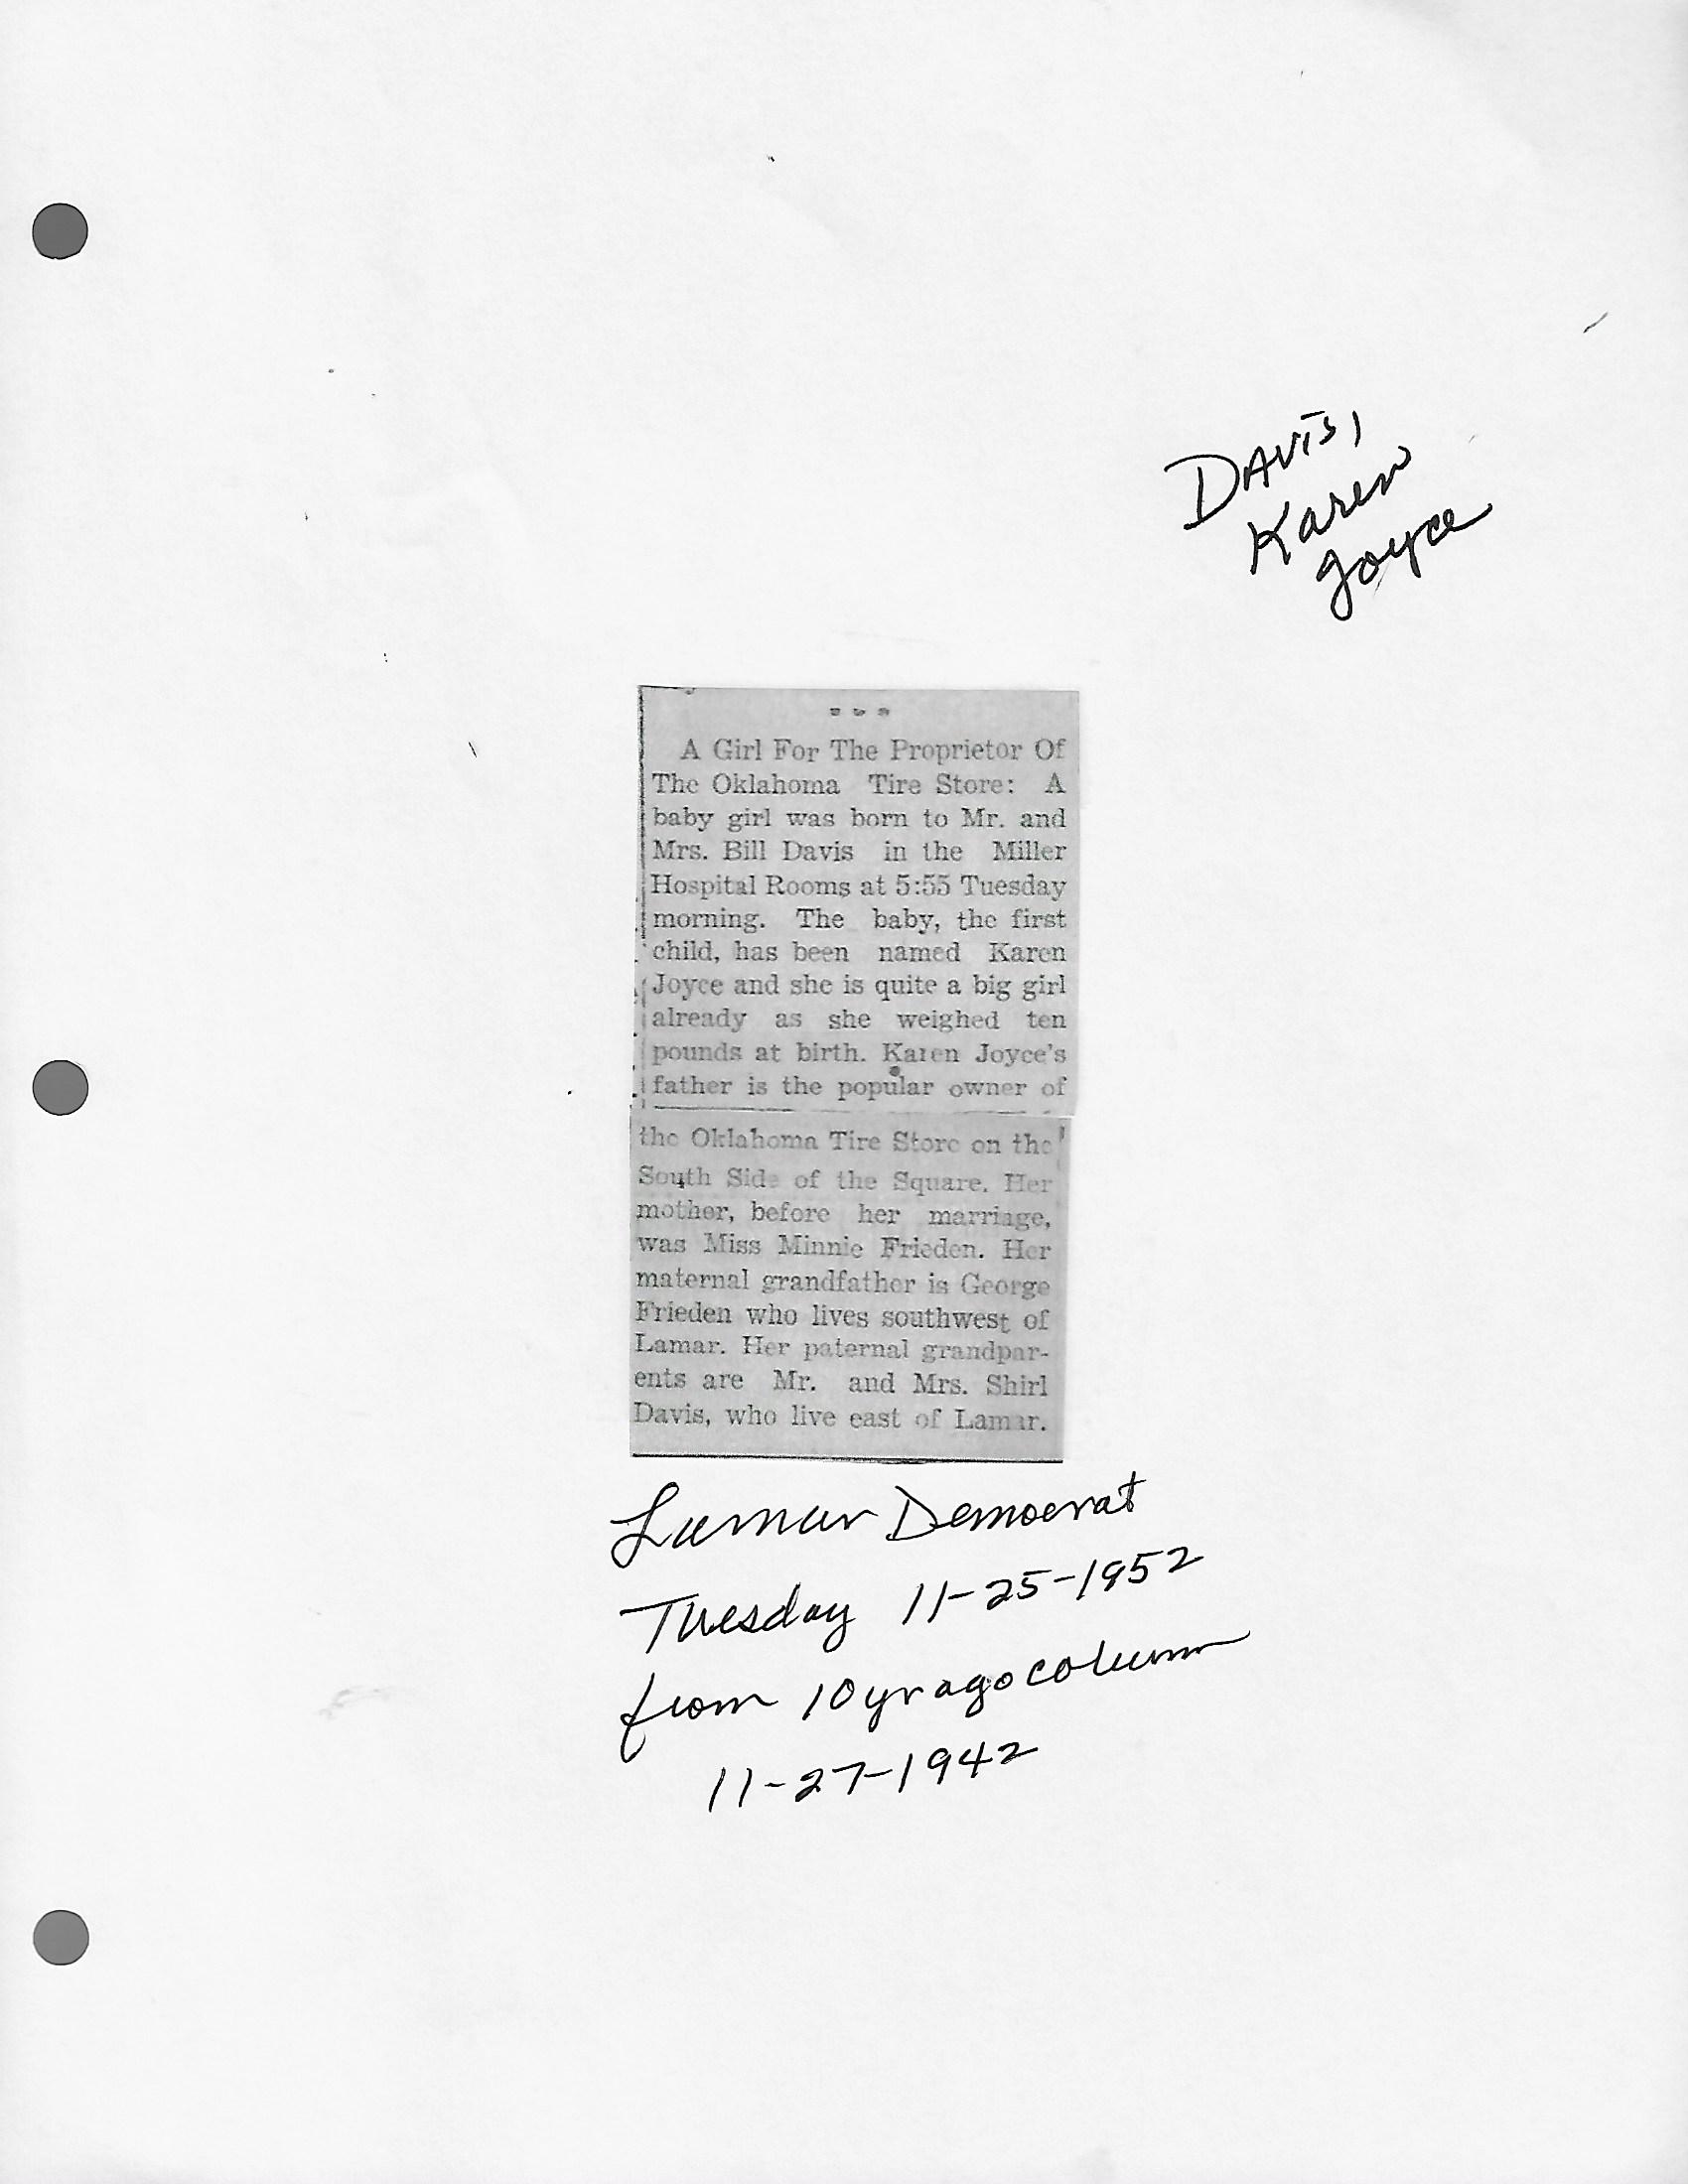 DAVIS,
Karen
Joyce
A Girl For The Proprietor Of
The Oklahoma Tire Store: A
baby girl was born to Mr. and
Mrs. Bill Davis in the Miller
Hospital Rooms at 5:55 Tuesday
morning. The baby, the first
child, has been named Karen
Joyce and she is quite a big girl
already as she weighed ten
pounds at birth. Karen Joyce's
father is the popular owner of
the Oklahoma Tire Store on the
South Side of the Square. Her
mother, before her marriage,
was Miss Minnie Frieden. Her
maternal grandfather is George
Frieden who lives southwest of
Lamar. Her paternal grandpar-
ents are Mr. and Mrs. Shirl
Davis, who live east of Lamar.
Lamar Democrat
Tuesday 11-25-1952
from 10 yr ago column
11-27-1942